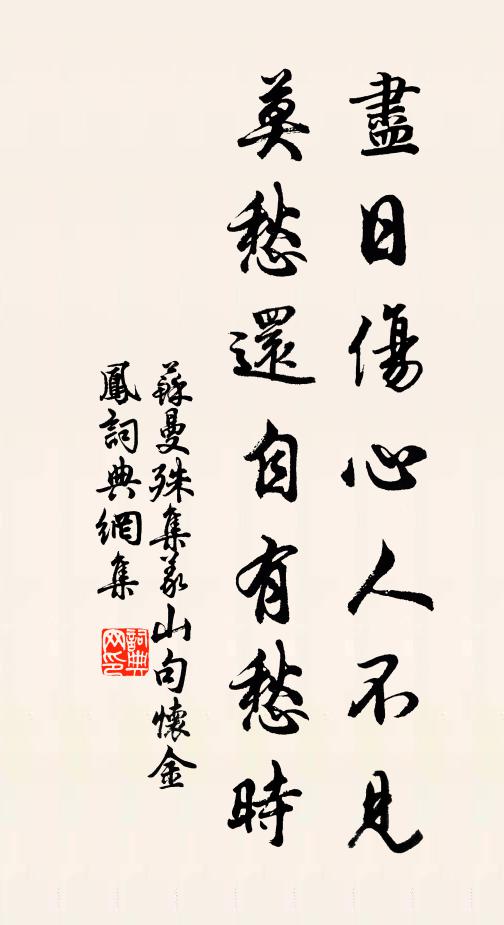 盡日傷心人不見
莫愁還自有愁時
蘇曼殊集義山句懷金
鳳詞典網集
詞典网印